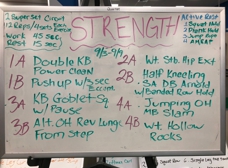 1 Super Set Circuit
12 Reps/
Work 45 sec
Rest 15 sec
STRENGTH
Active Rest
1. Squat Hold
2. Plank Hold
3. Jump Rope
4. AMRAP
9/3-9/9
1A Double KB
Power Clean
1B Pushup w/3sec
Eccent.
3A KB Goblet Sq
w/ Pause
3B Alt. OH Rev Lunge
From Step
2A Wt. Stb. Hip Ext
2B. Half Kneeling
SA DB Arnold
w/Banded Row Hold
4A. Jumping OH
MB Slam
4B Wt. Hollow
Rocks